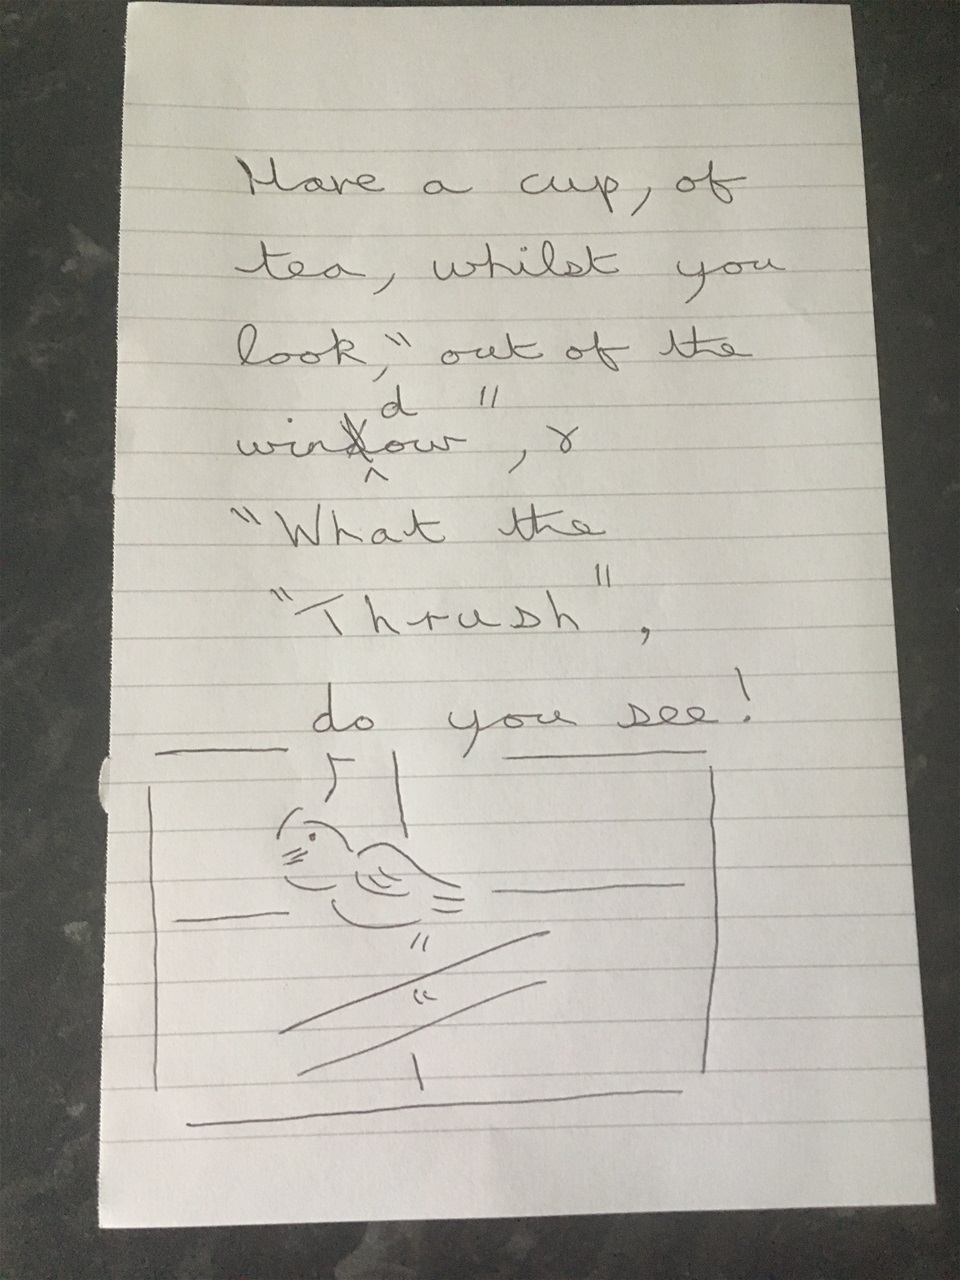 Have a cup, of
tea, whilst you
look," out of the
window", &
"What the
"Thrush",
do you see!